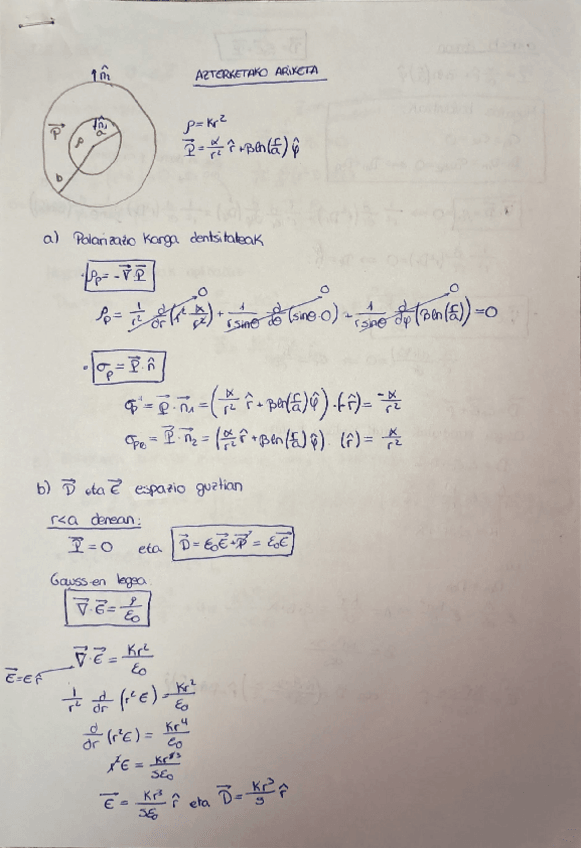 n̂
AZTERKETAKO ARIKETA
P⃗ ρ n̂₁ a b
ρ=Kr²
P⃗=α/r² r̂+βln(r/a)φ̂
a) Polarizazio karga dentsitateak
· ρp=-∇⃗P⃗
0 0 0
ρp= 1/r² d/dr(r² α/r²)+ 1/rsinθ d/dθ(sinθ·0) + 1/rsinθ d/dφ(βln(r/a))=0
· σp=P⃗·n̂
σp=P⃗·n⃗₁=(α/r² r̂+βln(r/a)φ̂)·(-r̂)=-α/r²
σp₂=P⃗·n⃗₂=(α/r² r̂+βln(r/a)φ̂)·(r̂)=α/r²
b) D⃗ eta ε⃗ espazio guztian
r<a denean:
P⃗=0 eta D⃗=ε₀ε⃗+P⃗=ε₀ε⃗
Gauss-en legea
∇⃗·ε⃗=ρ/ε₀
∇⃗·ε⃗=Kr²/ε₀
ε⃗=εr̂
1/r² d/dr(r²ε)=Kr²/ε₀
d/dr(r²ε)=Kr⁴/ε₀
r²ε=Kr⁵/5ε₀
ε⃗=Kr³/5ε₀ r̂ eta D⃗=Kr³/5 r̂